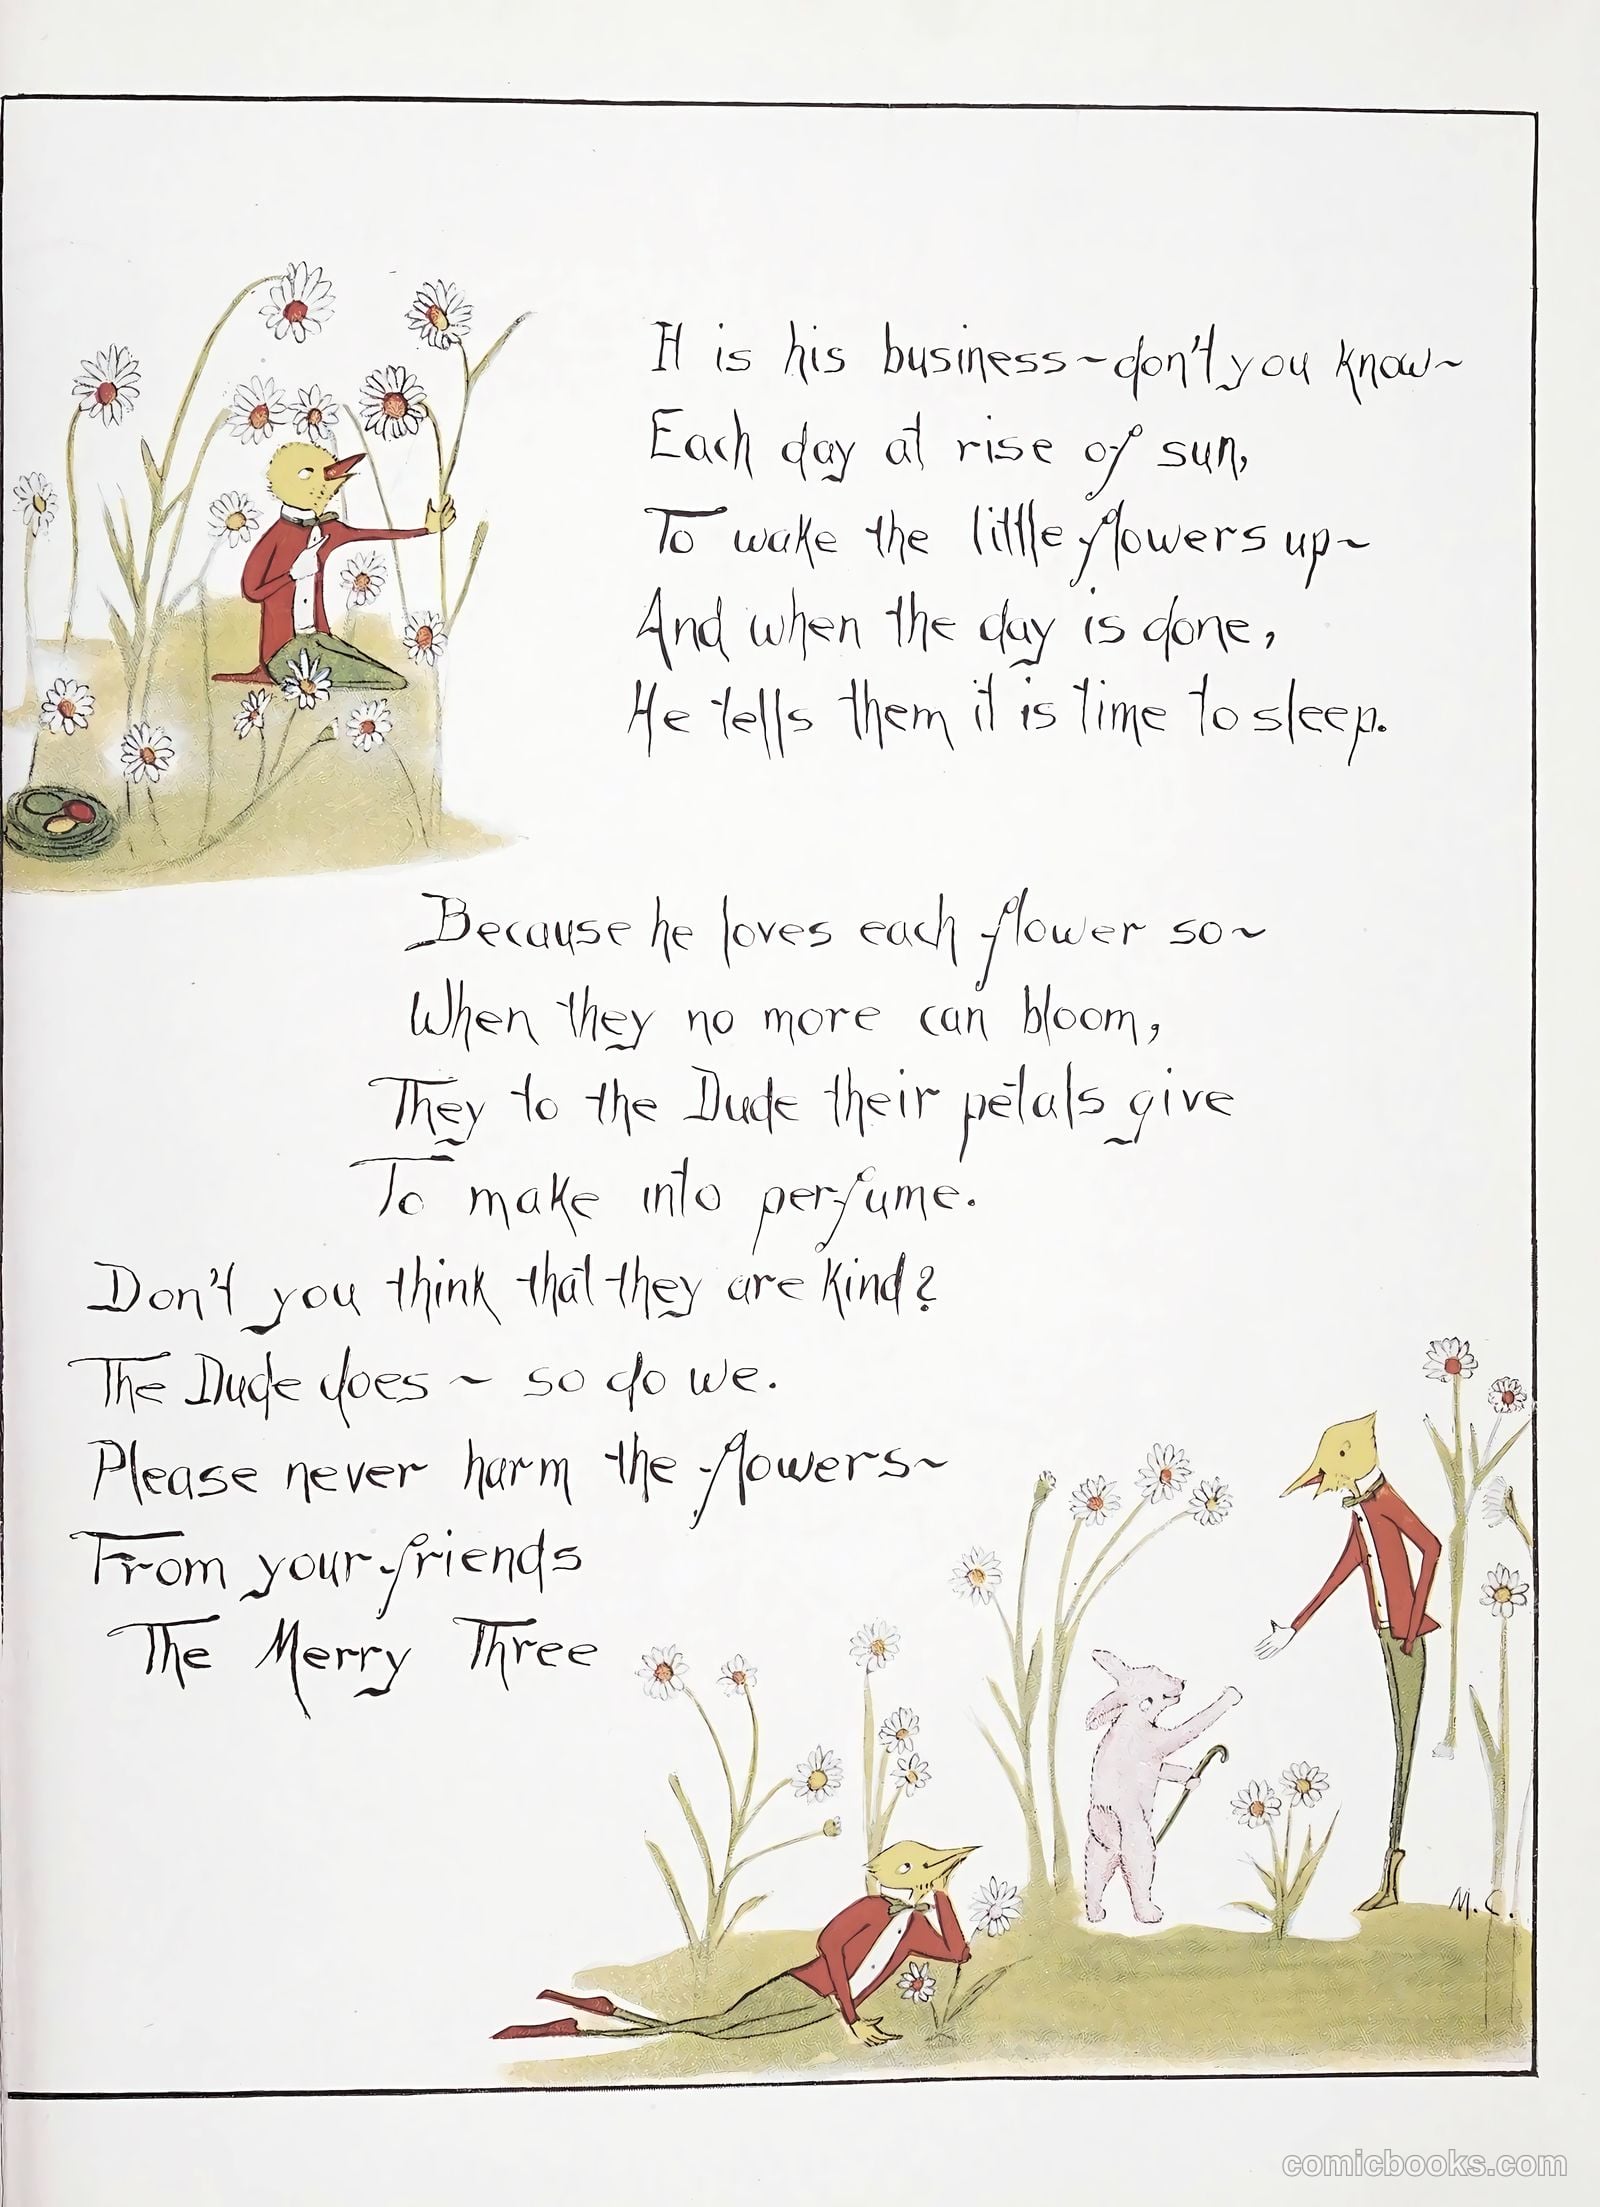 It is his business~don't you know~
Each day at rise of sun,
To wake the little flowers up~
And when the day is done,
He tells them it is time to sleep.
Because he loves each flower so~
When they no more can bloom,
They to the Dude their petals give
To make into perfume.
Don't you think that they are kind?
The Dude does ~ so do we.
Please never harm the flowers~
From your friends
The Merry Three
M.C.
comicbooks.com